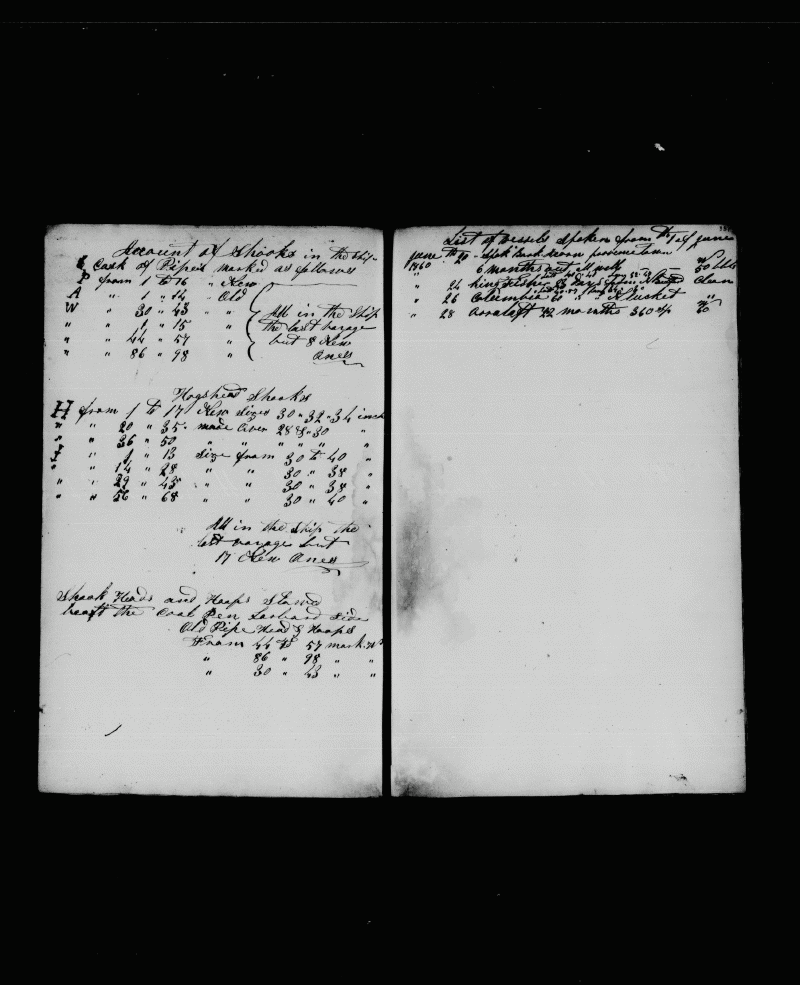 Account of Shooks in the Ship
Cask of Pipes marked as follows
P from 1 to 16 " New
A " 1 " 14 " Old
W " 30 " 43 " " All in the Ship
" " 1 " 15 " the last voyage
" " 44 " 57 " but 8 New
" " 86 " 98 " Ones
Hogshead Shooks
H from 1 to 17 New Sizes 30 " 32 " 34 inch
" " 20 " 35 " made over 28 & 30 "
" " 36 " 50 " " " " "
" 1 " 13 Size from 30 to 40 "
" 14 " 28 " " 30 " 38 "
" " 29 " 43 " " 30 " 38 "
" " 56 " 68 " " 30 " 40 "
All in the Ship the
last voyage but
17 New Ones
Shook Heads and Hoops Stowed
the Coal Pen Larboard Side
Old Pipe Head & Hoops
From 44 to 57 mark W
" 86 " 98 " "
" 30 " 43 " "
List of Vessels Spoken from th 1 of June
June th 20 - Spok bark provincetown
1860 6 months out 50 bbls
" 24 Kingfisher Clean
" 26 Columbia Nantucket "
" 28 22 months 360 60